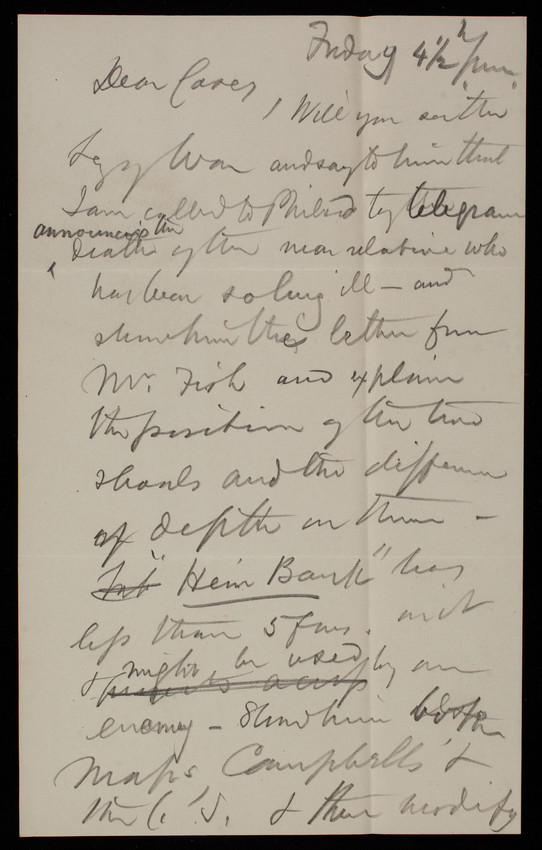 Friday 4 1/2 h p.m.
Dear Casey
Will you see the
Secy War and say to him that
I am called to Philad by telegram
announcing the
death of the near relative who
has been so long ill – and
show him the letter from
Mr. Fish and explain
the position of the two
shoals and the difference
of depth on them –
"Hein Bank" has
less than 5 fms. on it
& might be used by an
enemy – Show him both
maps Campbell's &
the C.S. & then modify